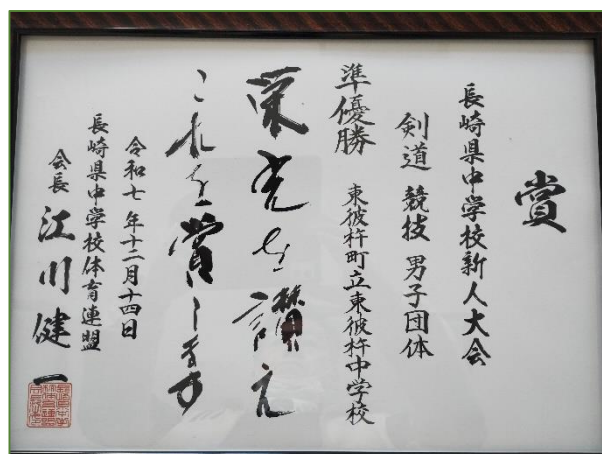 賞
長崎県中学校新人大会
剣道 競技 男子団体
準優勝 東彼杵町立東彼杵中学校
栄光を讃え
これを賞します
令和七年十二月十四日
長崎県中学校体育連盟
会長 江川健一